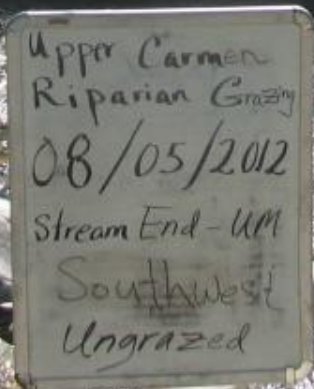 Upper Carmen
Riparian Grazing
08/05/2012
Stream End - UM
Southwest
Ungrazed